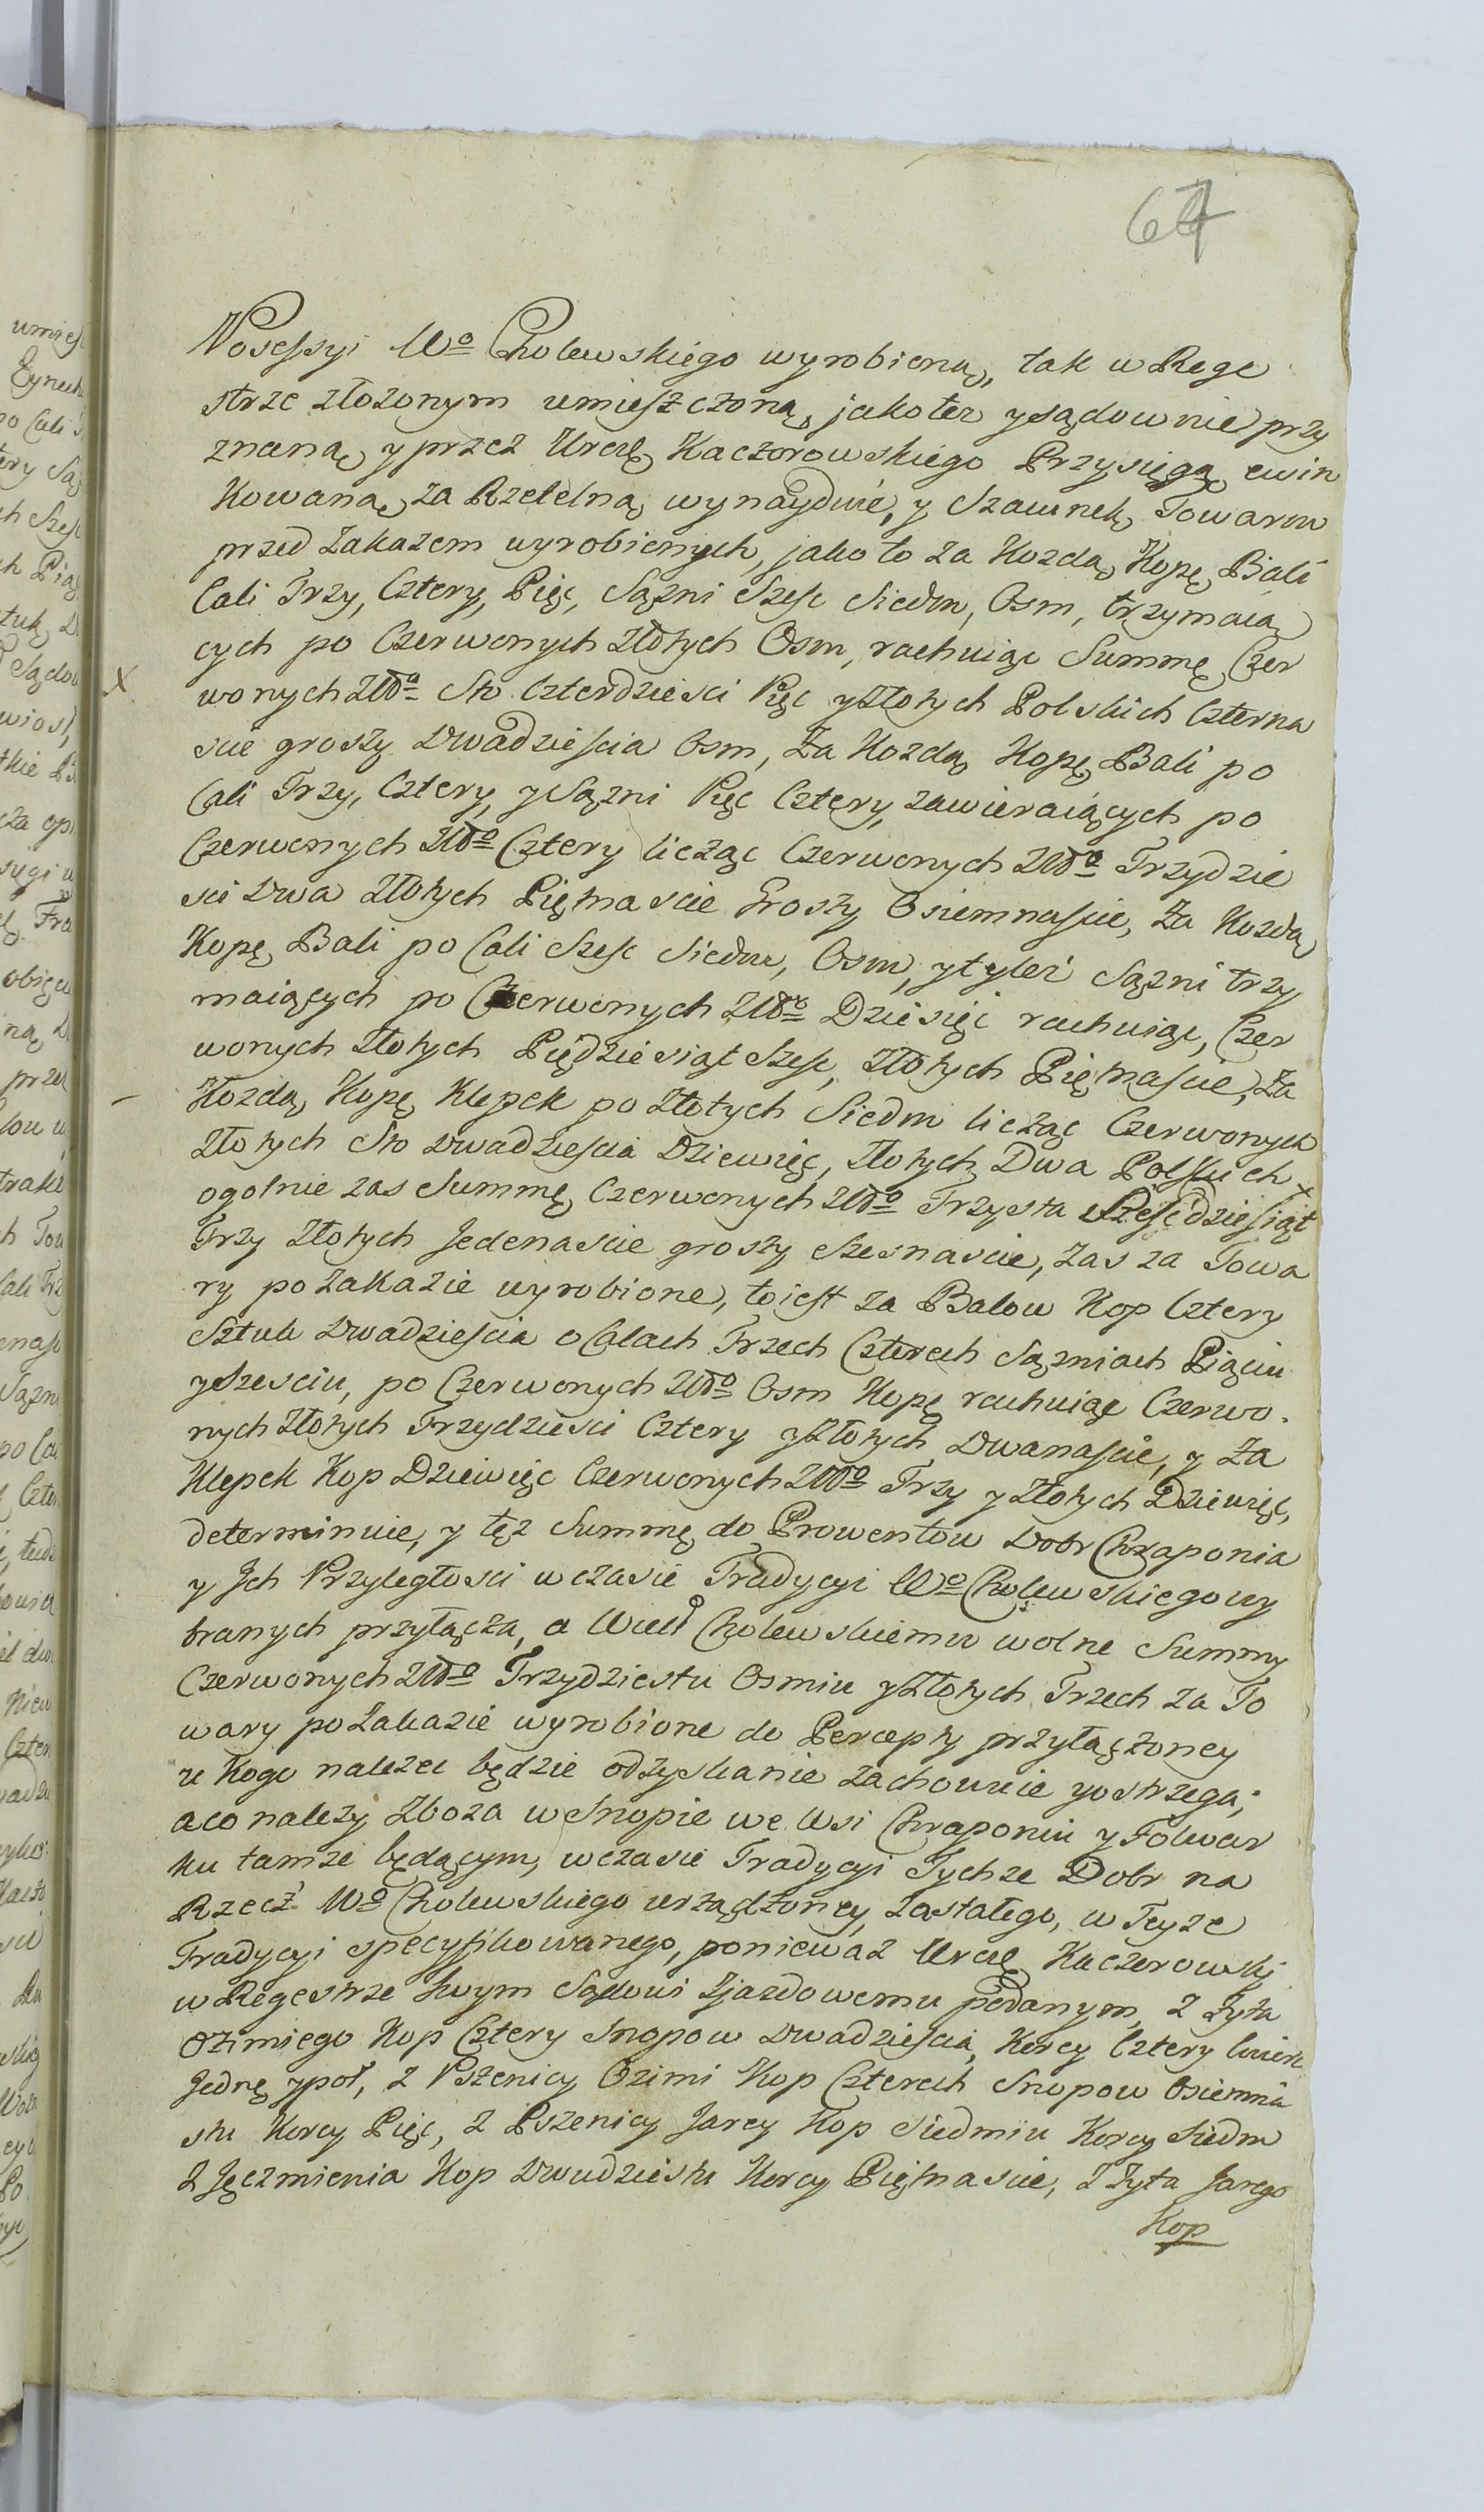 67
Posessyi Wo Cholewskiego wyrobioną, tak w Rege
strze złożonym umieszczoną, jako też y sądownie przy
znaną y przez Urodę Kaczorowskiego Przysięgą ewin
kowaną za Rzetelną wynayduie, y Szacunek Towarow
przed Zakazem wyrobionych, jako to za Kozdą Kopę Bali
Cali Trzy, Cztery, Pięc, Sązni Szesc Siedm, Osm, trzymaią
cych po Czerwonych Złotych Osm, rachuiąc Summę Czer
wonych Złło Sto Czterdziesci Pięc y Złotych Polskich Czterna
scie groszy Dwadziescia Osm, Za Kozdą Kopę Bali po
Cali Trzy, Cztery, y Sązni Pięc Cztery, zawieraiących po
Czerwonych Złło Cztery licząc Czerwonych Złło Trzydzie
sci Dwa Złotych Piętnascie Groszy Osiemnascie, Za Kozdą
Kopę Bali po Cali Szesc Siedm, Osm, y tyleż Sązni trzy
maiących po Czerwonych Złło Dziesięc rachuiąc, Czer
wonych Złotych Pięćdziesiąt Szesc, Złotych Piętnascie, Za
Kozdą Kopę Klepek po Złotych Siedm licząc Czerwonych
Złotych Sto Dwadziescia Dziewięc, Złotych Dwa Polskich
ogolnie zas Summę Czerwonych Złło Trzysta Szescdziesiąt
Trzy Złotych Jedenascie groszy Szesnascie, zas za Towa
ry po Zakazie wyrobione, to iest za Balow Kop Cztery
Sztuk Dwadziescia o Calach Trzech Czterech Sązniach Piąciu
y Szesciu, po Czerwonych Złło Osm Kopę rachuiąc Czerwo
nych Złotych Trzydziesci Cztery y Złotych Dwanascie, y Za
Klepek Kop Dziewięc Czerwonych Złło Trzy y Złotych Dziewięc,
determinuie, y tęż Summę do Prowentow Dobr Chraponia
y Jch Przyległosci w czasie Tradycyi Wo Cholewskiego wy
branych przyłącza, a Wielo Cholewskiemu wolne Summy
Czerwonych Złło Trzydziestu Osmiu y Złotych Trzech za To
wary po Zakazie wyrobione do Percepty przyłączoney
u kogo nalezec będzie odzyskanie zachowuie y ostrzega;
a co nalezy Zboza w Snopie we Wsi Chraponiu y Folwar
ku tamze będącym, w czasie Tradycyi Tychze Dobr na
Rzecz Wo Cholewskiego urządzoney, zastałego, w Teyze
Tradycyi specyfikowanego, poniewaz Urodę Kaczorowski
w Regestrze Swym Sądowi Zjazdowemu podanym, z Zyta
Ozimiego Kop Cztery Snopow Dwadziescia, Korcy Cztery
Jednę y poł, z Pszenicy Ozimi Kop Czterech Snopow Osiemna
stu Korcy Pięc, z Pszenicy Jarey Kop Siedmiu Korcy Siedm
z Jęczmienia Kop Dwudziestu Korcy Piętnascie, z Zyta Jarego
Kop